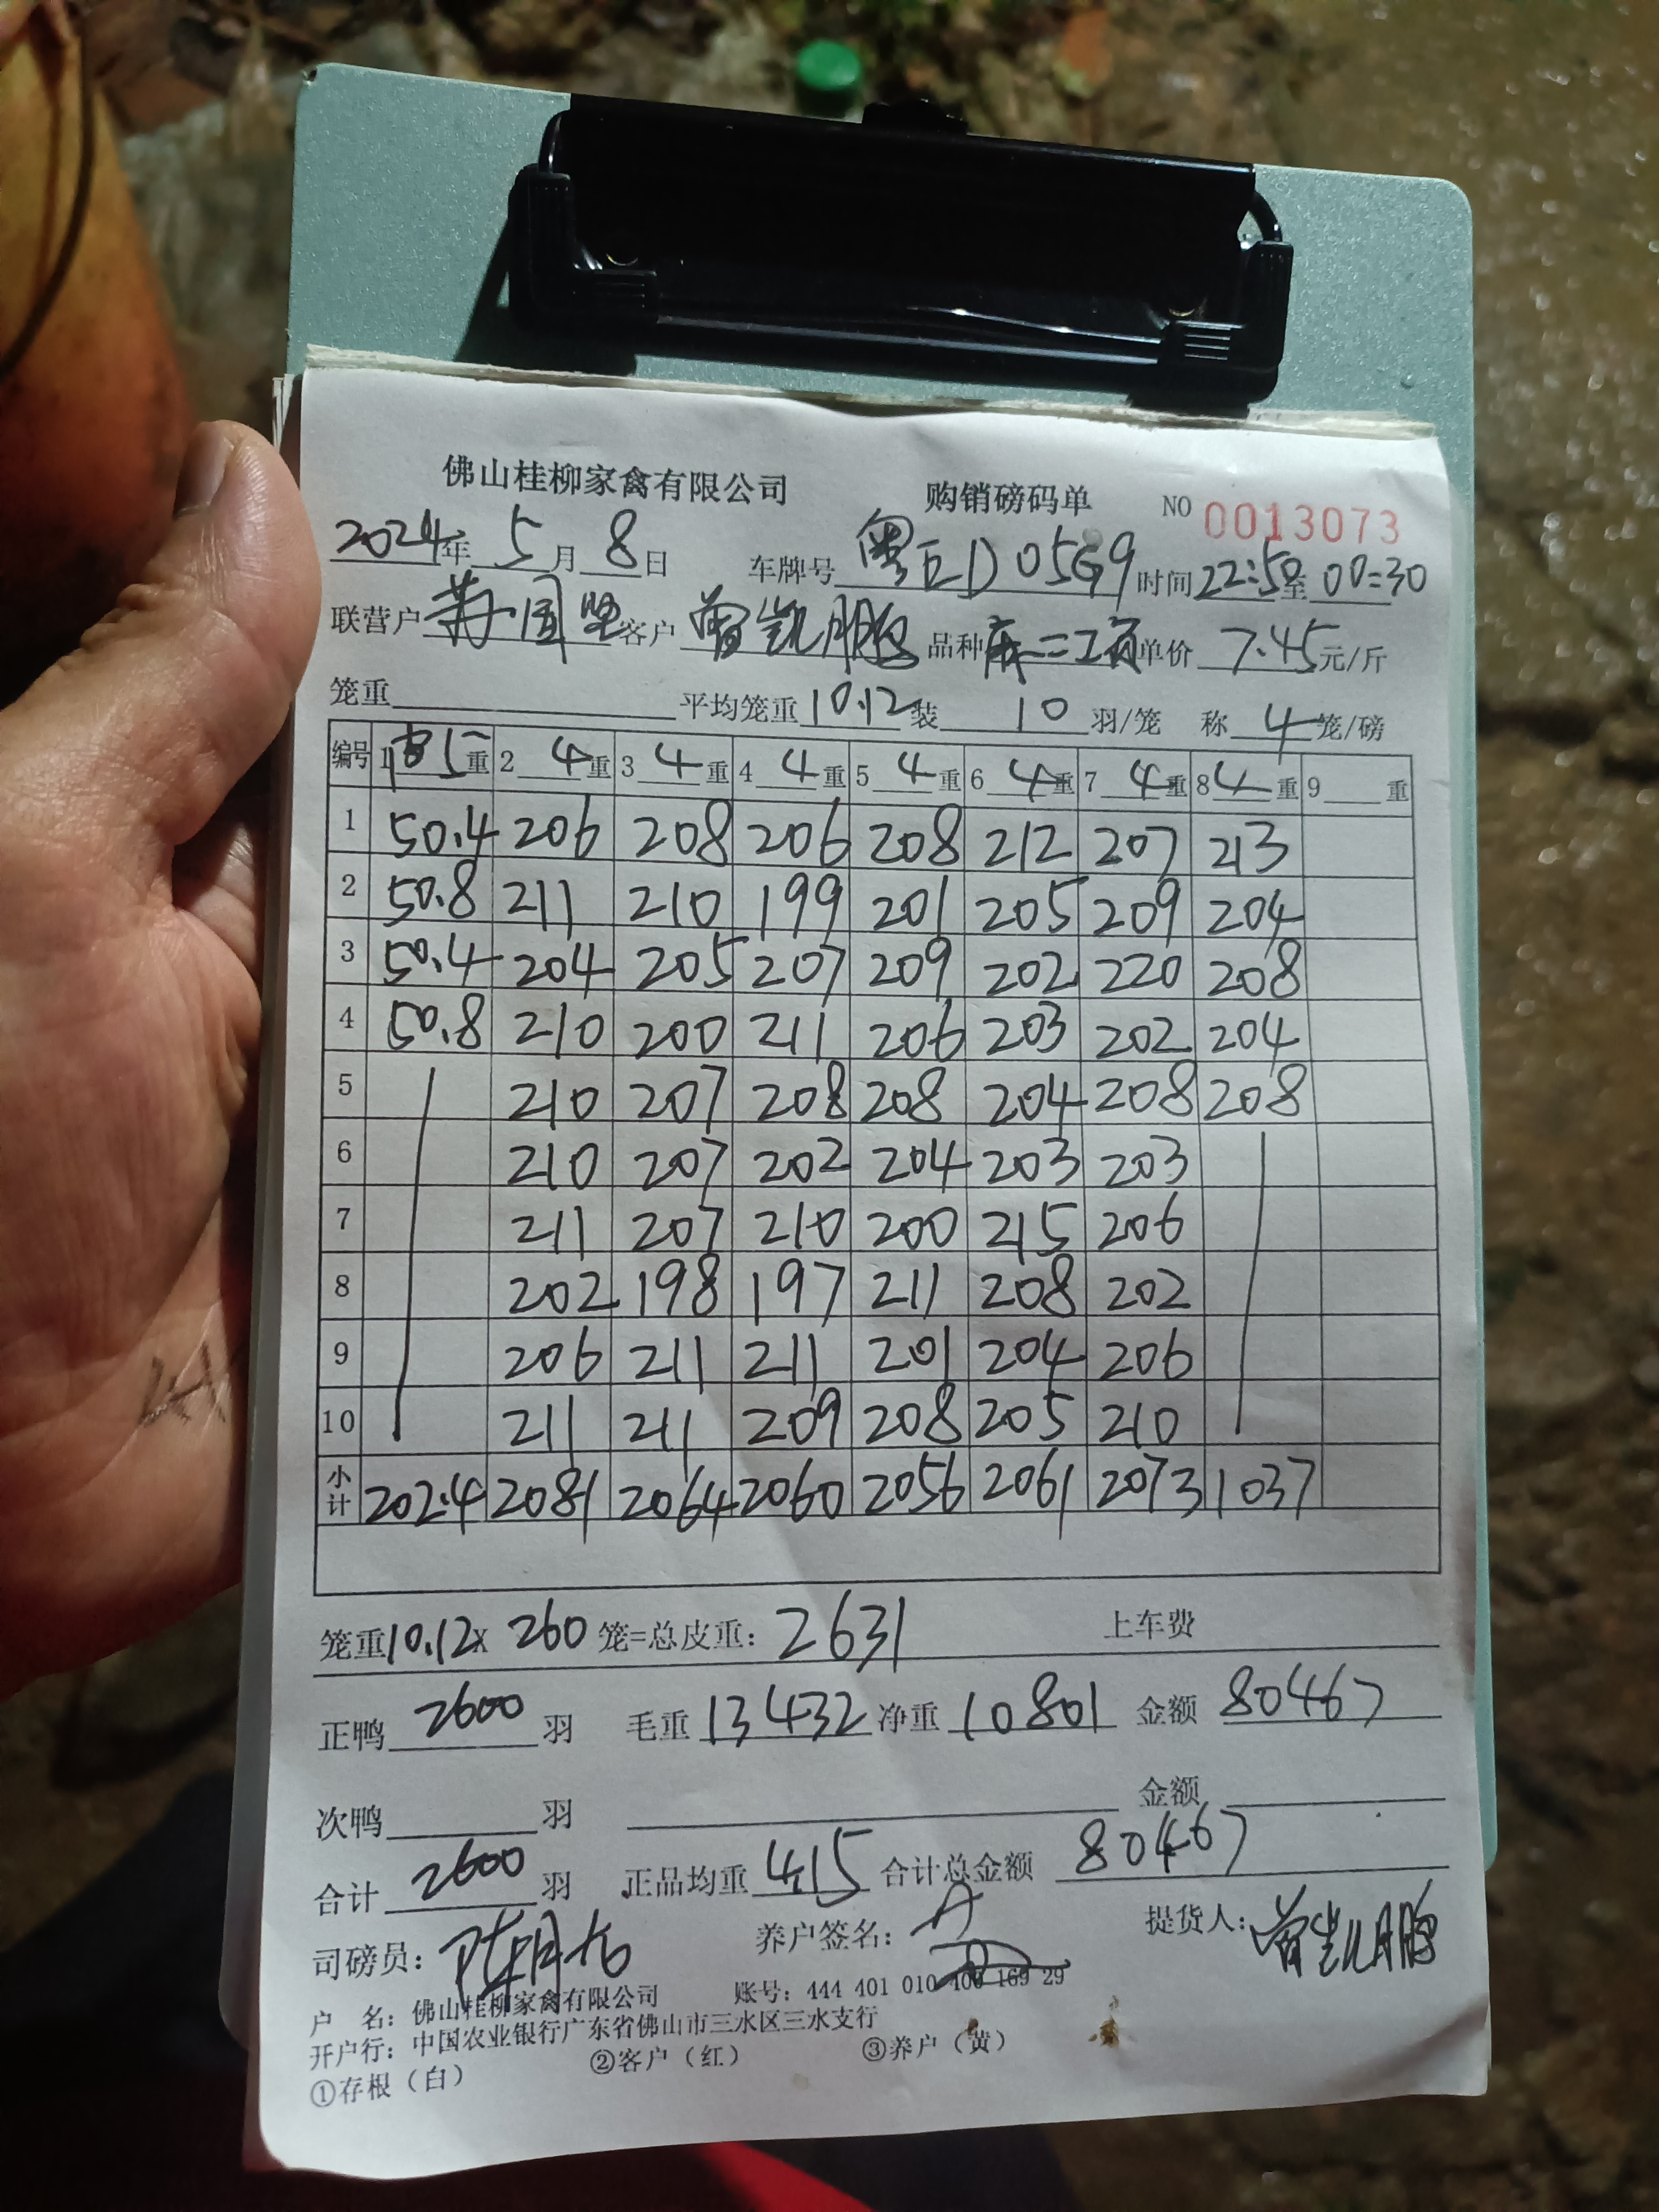 佛山桂柳家禽有限公司 购销磅码单 NO 0013073
2024年 5月 8日 车牌号 粤ED05G9 时间 22:50至 00:30
联营户 客户 曾凯鹏 品种 单价 7.45元/斤
笼重 平均笼重 10.12 装 10 羽/笼 称 4 笼/磅
编号 1 5重 2 4重 3 4重 4 4重 5 4重 6 4重 7 4重 8 4重 9 重
1 50.4 206 208 206 208 212 207 213
2 50.8 211 210 199 201 205 209 204
3 50.4 204 205 207 209 202 220 208
4 50.8 210 200 211 206 203 202 204
5 210 207 208 208 204 208 208
6 210 207 202 204 203 203
7 211 207 210 200 215 206
8 202 198 197 211 208 202
9 206 211 211 201 204 206
10 211 211 209 208 205 210
小计 202.4 2081 2064 2060 2056 2061 2073 1037
笼重10.12x 260 笼=总皮重: 2631 上车费
正鸭 2600 羽 毛重 13432 净重 10801 金额 80467
次鸭 羽 金额
合计 2600 羽 正品均重 4.15 合计总金额 80467
司磅员: 养户签名: 提货人: 曾凯鹏
户 名: 佛山桂柳家禽有限公司 账号: 444 401 010 400 169 29
开户行: 中国农业银行广东省佛山市三水区三水支行
①存根（白） ②客户（红） ③养户（黄）